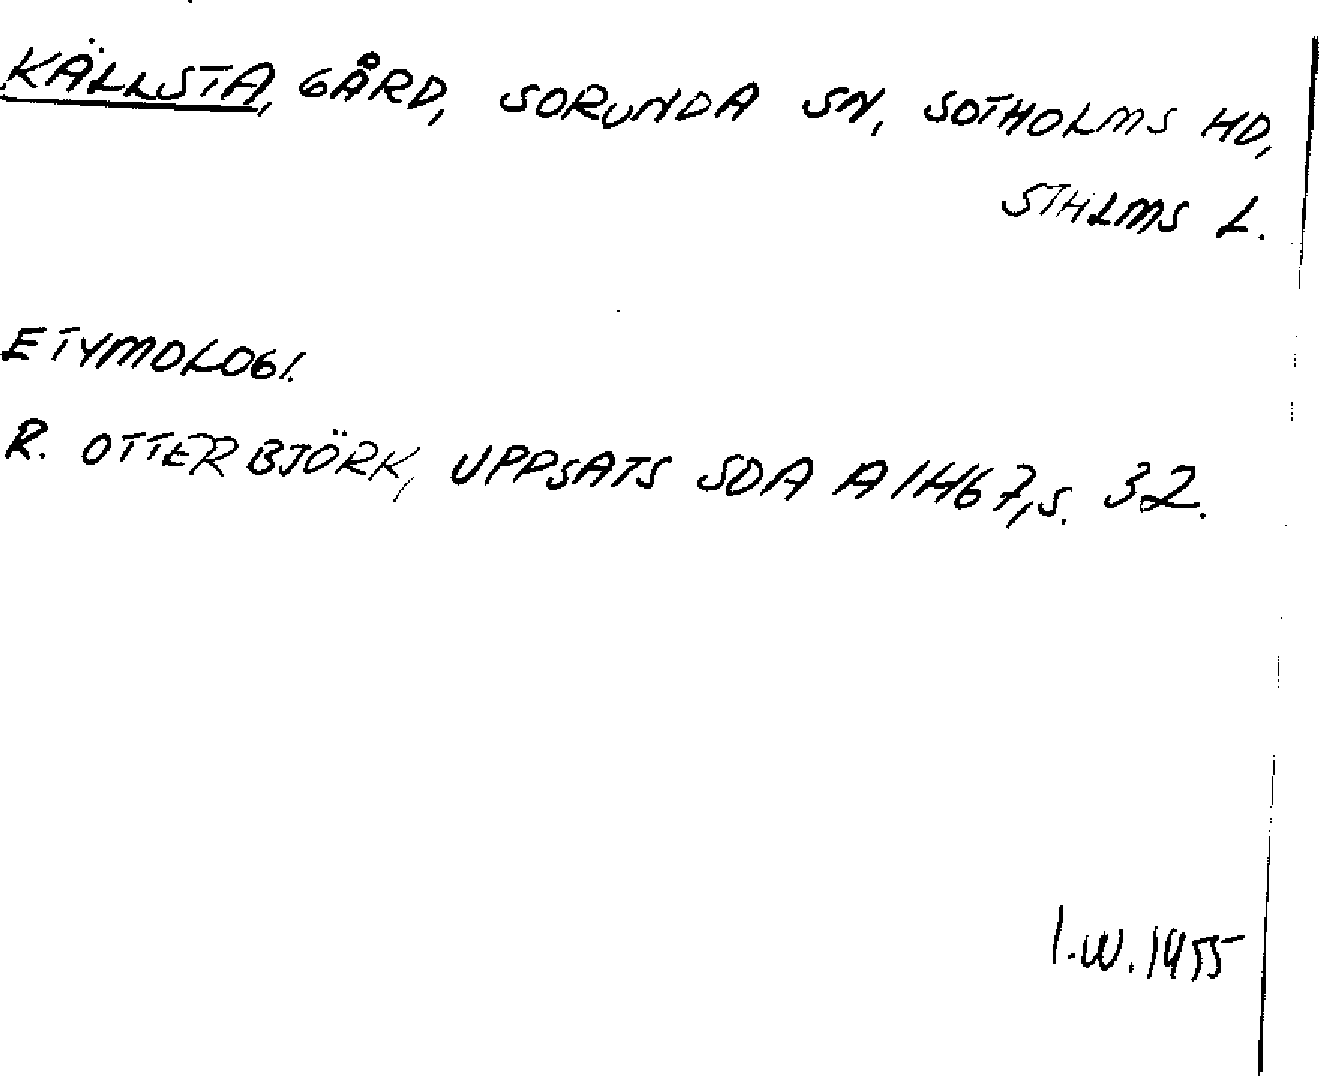 KÄLLSTA, GÅRD, SORUNDA SN, SOTHOLMS HD,
STHLMS L.
ETYMOLOGI.
R. OTTERBJÖRK, UPPSATS SOA A 1467, S. 32.
I.W. 1955